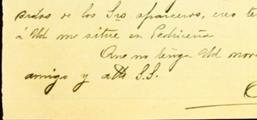 ardas de los Sres aparceros, creo te
á Ud me sitúe en Pechireña
Que no tenga Ud nove
amigo y atto S.S.